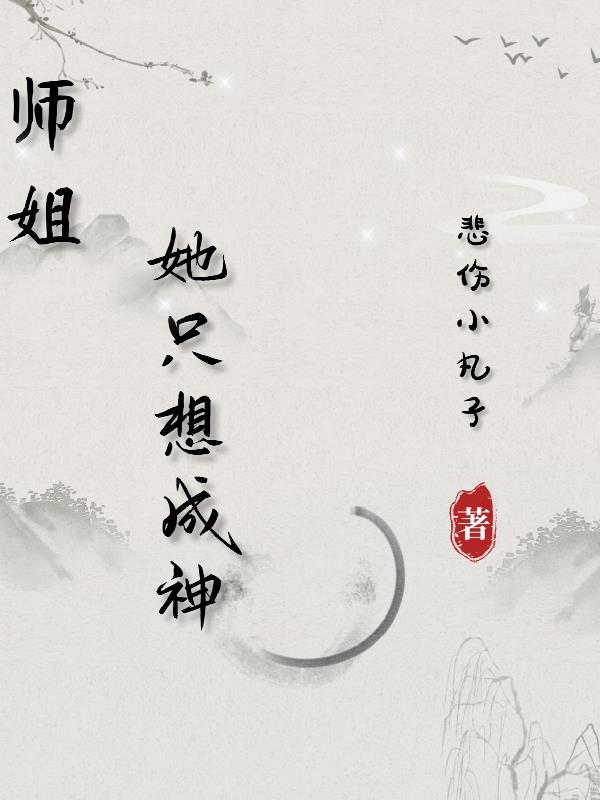 师姐
她只想成神
悲伤小丸子
著